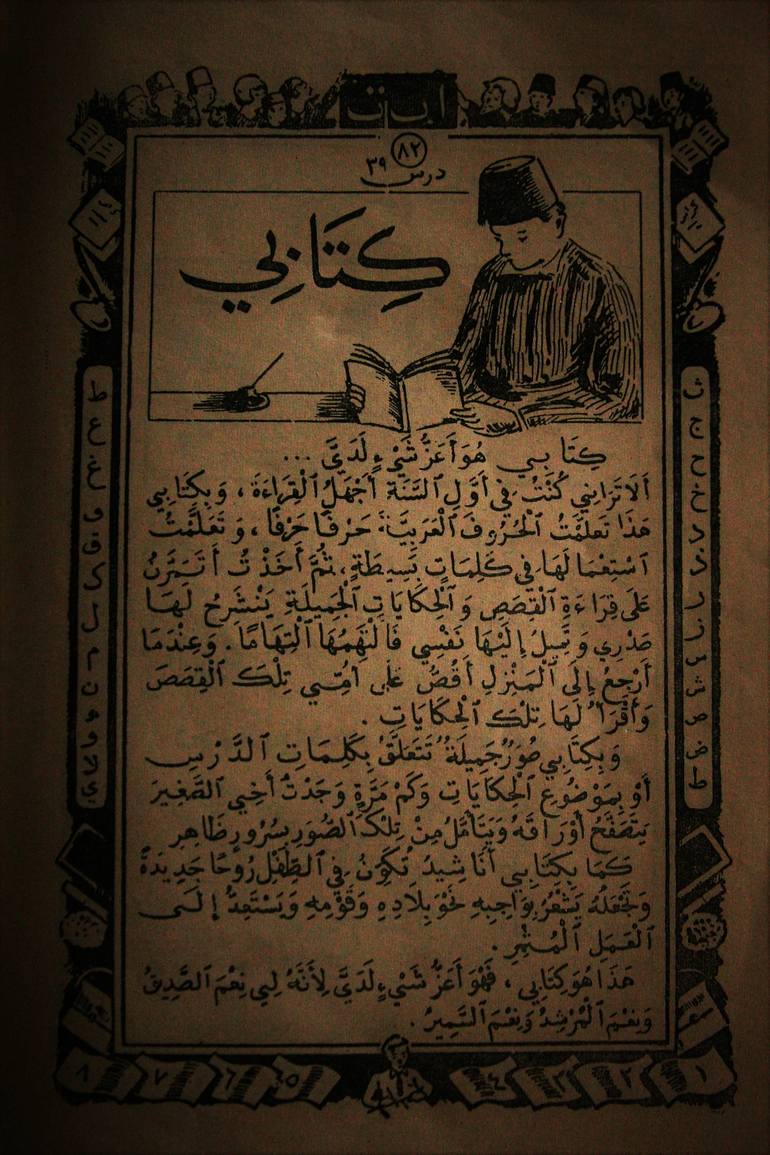 أ ب ت
٨٢
درس ٣٩
كِتَابِي
كِتَابِي هُوَ أَعَزُّ شَيْءٍ لَدَيَّ ...
أَلَا تَرَانِي كُنْتُ فِي أَوَّلِ السَّنَةِ أَجْهَلُ الْقِرَاءَةَ، وَبِكِتَابِي
هَذَا تَعَلَّمْتُ الْحُرُوفَ الْعَرَبِيَّةَ حَرْفًا حَرْفًا، وَتَعَلَّمْتُ
اسْتِعْمَالَهَا فِي كَلِمَاتٍ بَسِيطَةٍ، ثُمَّ أَخَذْتُ أَتَمَرَّنُ
عَلَى قِرَاءَةِ الْقِصَصِ وَالْحِكَايَاتِ الْجَمِيلَةِ يَنْشَرِحُ لَهَا
صَدْرِي وَتَمِيلُ إِلَيْهَا نَفْسِي فَأَلْتَهِمُهَا الْتِهَامًا. وَعِنْدَمَا
أَرْجِعُ إِلَى الْمَنْزِلِ أَقُصُّ عَلَى أُمِّي تِلْكَ الْقِصَصَ
وَأَقْرَأُ لَهَا تِلْكَ الْحِكَايَاتِ.
وَبِكِتَابِي صُوَرٌ جَمِيلَةٌ تَتَعَلَّقُ بِكَلِمَاتِ الدَّرْسِ
أَوْ بِمَوْضُوعِ الْحِكَايَاتِ وَكَمْ مَرَّةٍ وَجَدْتُ أَخِي الصَّغِيرَ
يَتَصَفَّحُ أَوْرَاقَهُ وَيَتَأَمَّلُ مِنْ تِلْكَ الصُّوَرِ بِسُرُورٍ ظَاهِرٍ
كَمَا بِكِتَابِي أَنَاشِيدُ تُكَوِّنُ فِي الطِّفْلِ رُوحًا جَدِيدَةً
وَتَجْعَلُهُ يَشْعُرُ بِوَاجِبِهِ نَحْوَ بِلَادِهِ وَقَوْمِهِ وَيَسْتَعِدُّ إِلَى
الْعَمَلِ الْمُثْمِرِ.
هَذَا هُوَ كِتَابِي، فَهُوَ أَعَزُّ شَيْءٍ لَدَيَّ لِأَنَّهُ لِي نِعْمَ الصَّدِيقُ
وَنِعْمَ الْمُرْشِدُ وَنِعْمَ السَّمِيرُ.
ث
ج
ح
خ
د
ذ
ر
ز
س
ش
ص
ض
ط
ظ
ع
غ
ف
ق
ك
ل
م
ن
ه
و
لا
ي
١ ٢ ٣ ٤ ٥ ٦ ٧ ٨